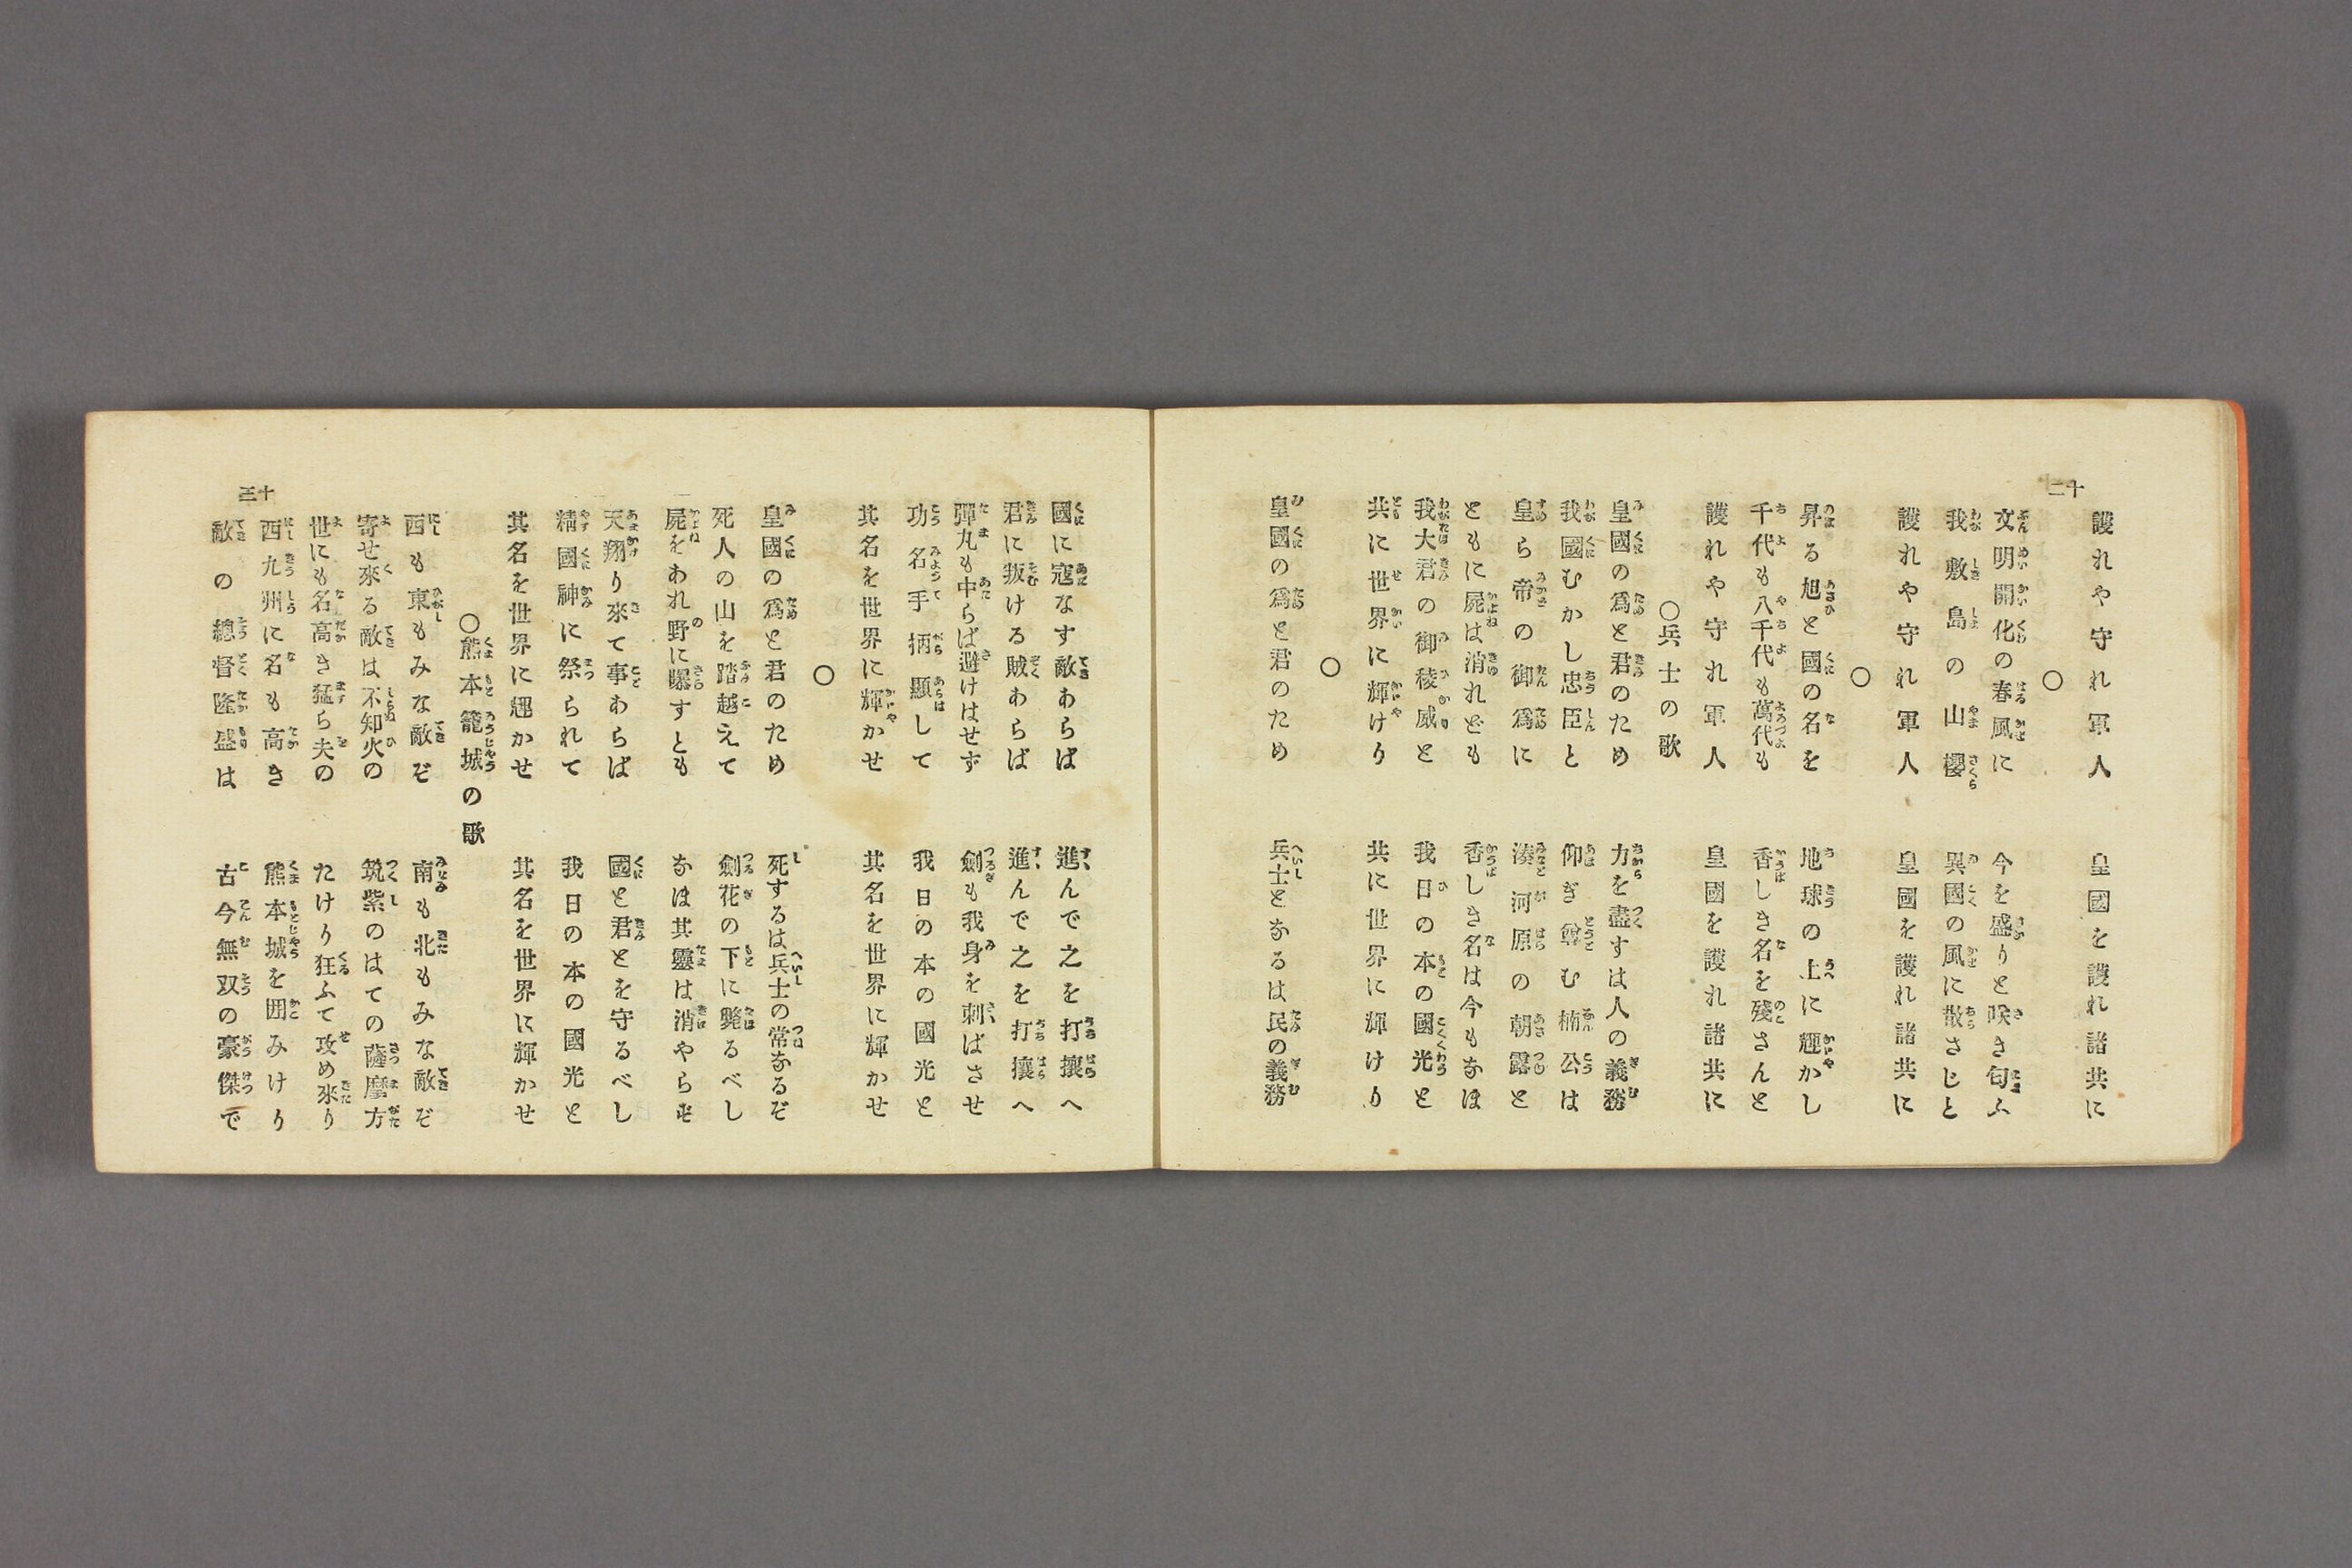 十二
護れや守れ軍人 皇國を護れ諸共に
○
文明開化の春風に 今を盛りと咲き匂ふ
我敷島の山櫻 異國の風に散さじと
護れや守れ軍人 皇國を護れ諸共に
○
昇る旭と國の名を 地球の上に輝かし
千代も八千代も萬代も 香しき名を殘さんと
護れや守れ軍人 皇國を護れ諸共に
○兵士の歌
皇國の爲と君のため 力を盡すは人の義務
我國むかし忠臣と 仰ぎ尊む楠公は
皇ら帝の御爲に 湊河原の朝露と
ともに屍は消れども 香しき名は今もなほ
我大君の御稜威と 我日の本の國光と
共に世界に輝けり 共に世界に輝けり
○
皇國の爲と君のため 兵士となるは民の義務
國に寇なす敵あらば 進んで之を打攘へ
君に叛ける賊あらば 進んで之を打攘へ
彈丸も中らば避けはせず 劍も我身を刺ばさせ
功名手柄顯して 我日の本の國光と
其名を世界に輝かせ 其名を世界に輝かせ
○
皇國の爲と君のため 死するは兵士の常なるぞ
死人の山を踏越えて 劍花の下に斃るべし
屍をあれ野に曝すとも なほ其靈は消やらず
天翔り來て事あらば 國と君とを守るべし
精國神に祭られて 我日の本の國光と
其名を世界に輝かせ 其名を世界に輝かせ
○熊本籠城の歌
西も東もみな敵ぞ 南も北もみな敵ぞ
寄せ來る敵は不知火の 筑紫のはての薩摩方
世にも名高き猛ら夫の たけり狂ふて攻め來り
西九州に名も高き 熊本城を囲みけり
敵の總督隆盛は 古今無双の豪傑で
十三